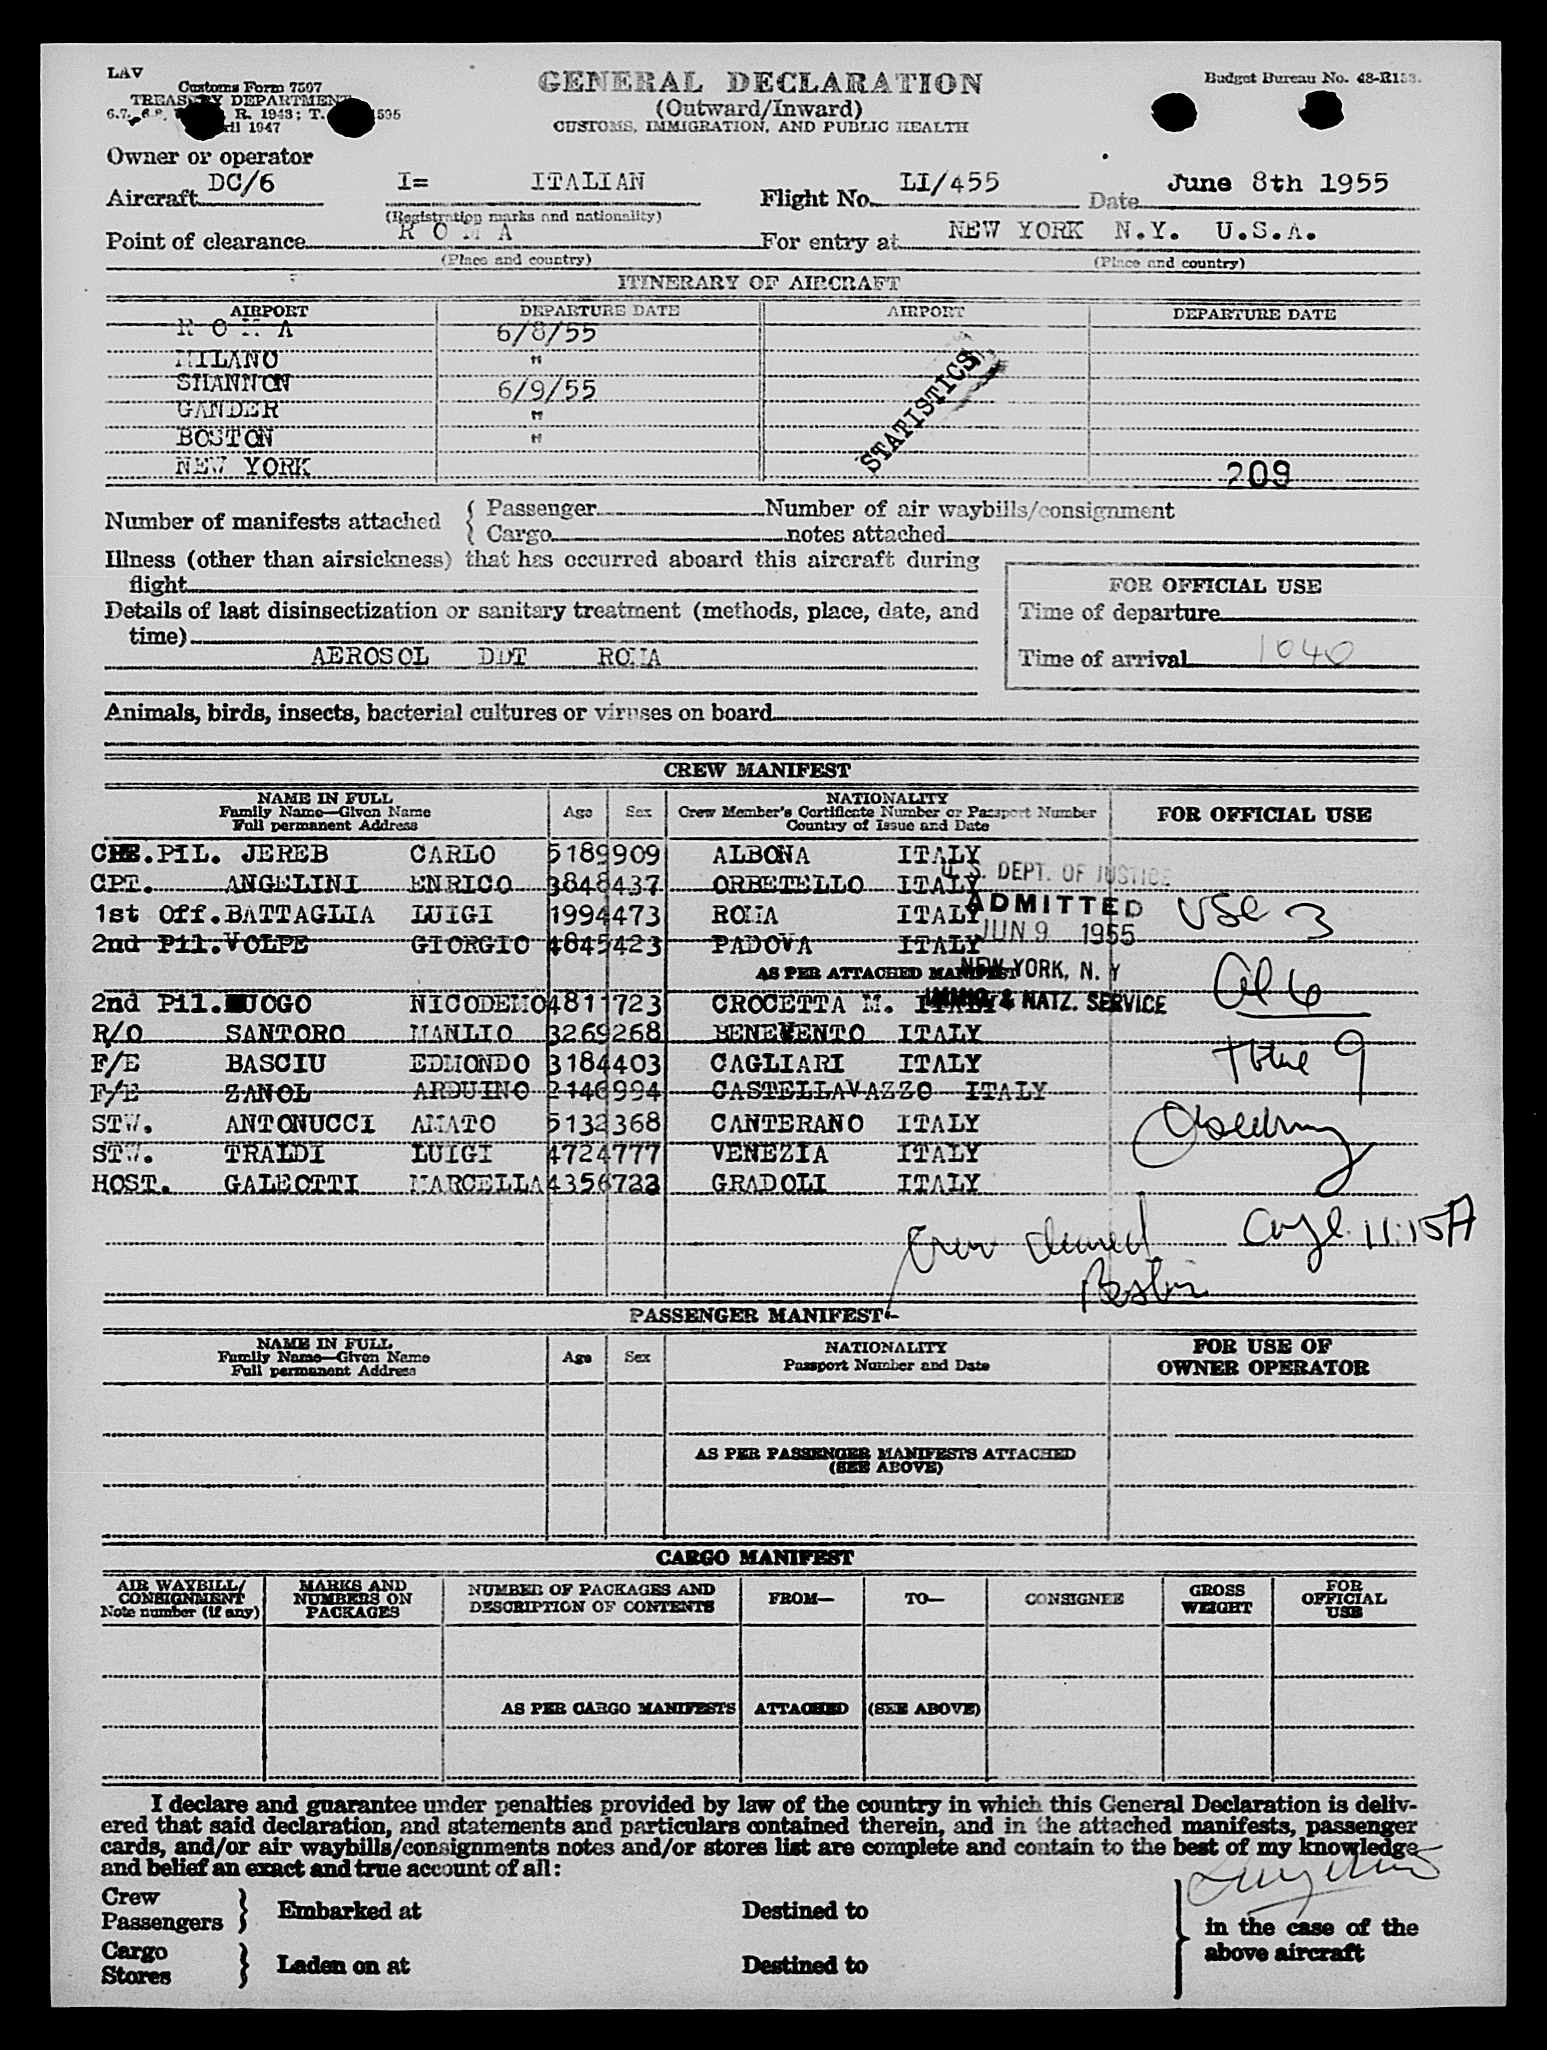 LAV
Customs Form 7507
TREASURY DEPARTMENT
R. 1943; T.
1947
GENERAL DECLARATION
(Outward/Inward)
CUSTOMS, IMMIGRATION, AND PUBLIC HEALTH
Budget Bureau No. 48-R133.
Owner or operator
Aircraft DC/6 I= ITALIAN Flight No. LI/455 Date June 8th 1955
(Registration marks and nationality)
Point of clearance R O M A For entry at NEW YORK N.Y. U.S.A.
(Place and country) (Place and country)
ITINERARY OF AIRCRAFT
AIRPORT DEPARTURE DATE AIRPORT DEPARTURE DATE
R O M A 6/8/55
MILANO "
SHANNON 6/9/55
GANDER "
BOSTON "
NEW YORK
STATISTICS
209
Number of manifests attached { Passenger Number of air waybills/consignment
{ Cargo notes attached
Illness (other than airsickness) that has occurred aboard this aircraft during
flight
Details of last disinsectization or sanitary treatment (methods, place, date, and
time)
AEROSOL DDT ROMA
FOR OFFICIAL USE
Time of departure
Time of arrival 1040
Animals, birds, insects, bacterial cultures or viruses on board
CREW MANIFEST
NAME IN FULL
Family Name—Given Name
Full permanent Address
Age Sex
NATIONALITY
Crew Member's Certificate Number or Passport Number
Country of Issue and Date
FOR OFFICIAL USE
PIL. JEREB CARLO 5189909 ALBONA ITALY
CPT. ANGELINI ENRICO 3848437 ORBETELLO ITALY
1st Off. BATTAGLIA LUIGI 1994473 ROMA ITALY
2nd Pil. VOLPE GIORGIO 4845423 PADOVA ITALY
AS PER ATTACHED MANIFEST
2nd Pil. UOGO NICODEMO 4811723 CROCETTA M. ITALY
R/O SANTORO MANLIO 3269268 BENEVENTO ITALY
F/E BASCIU EDMONDO 3184403 CAGLIARI ITALY
F/E ZANOL ARDUINO 2146994 CASTELLAVAZZO ITALY
STW. ANTONUCCI AMATO 5132368 CANTERANO ITALY
STW. TRALDI LUIGI 4724777 VENEZIA ITALY
HOST. GALEOTTI MARCELLA 4356722 GRADOLI ITALY
U.S. DEPT. OF JUSTICE
ADMITTED
JUN 9 1955
NEW YORK, N. Y
IMMIG. & NATZ. SERVICE
USC 3
Al 6
Total 9
11:15A
Crew cleared
Boston
PASSENGER MANIFEST
NAME IN FULL
Family Name—Given Name
Full permanent Address
Age Sex
NATIONALITY
Passport Number and Date
FOR USE OF
OWNER OPERATOR
AS PER PASSENGER MANIFESTS ATTACHED
(SEE ABOVE)
CARGO MANIFEST
AIR WAYBILL/
CONSIGNMENT
Note number (if any)
MARKS AND
NUMBERS ON
PACKAGES
NUMBER OF PACKAGES AND
DESCRIPTION OF CONTENTS
FROM— TO— CONSIGNEE
GROSS
WEIGHT
FOR
OFFICIAL
USE
AS PER CARGO MANIFESTS ATTACHED (SEE ABOVE)
I declare and guarantee under penalties provided by law of the country in which this General Declaration is deliv-
ered that said declaration, and statements and particulars contained therein, and in the attached manifests, passenger
cards, and/or air waybills/consignments notes and/or stores list are complete and contain to the best of my knowledge
and belief an exact and true account of all:
Crew
Passengers } Embarked at Destined to
Cargo
Stores } Laden on at Destined to
in the case of the
above aircraft